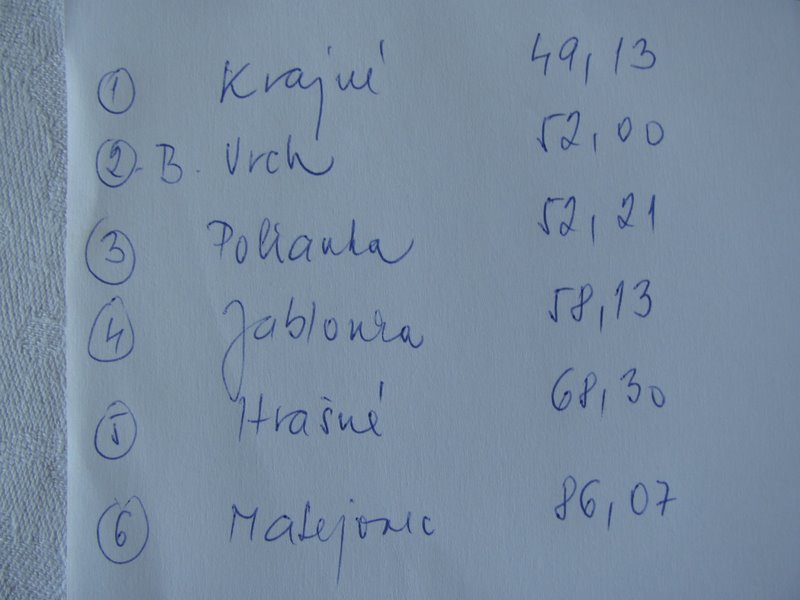 1 Krajné 49,13
2. B. Vrch 52,00
3 Polianka 52,21
4 Jablonka 58,13
5 Hrašné 68,30
6 Matejovec 86,07